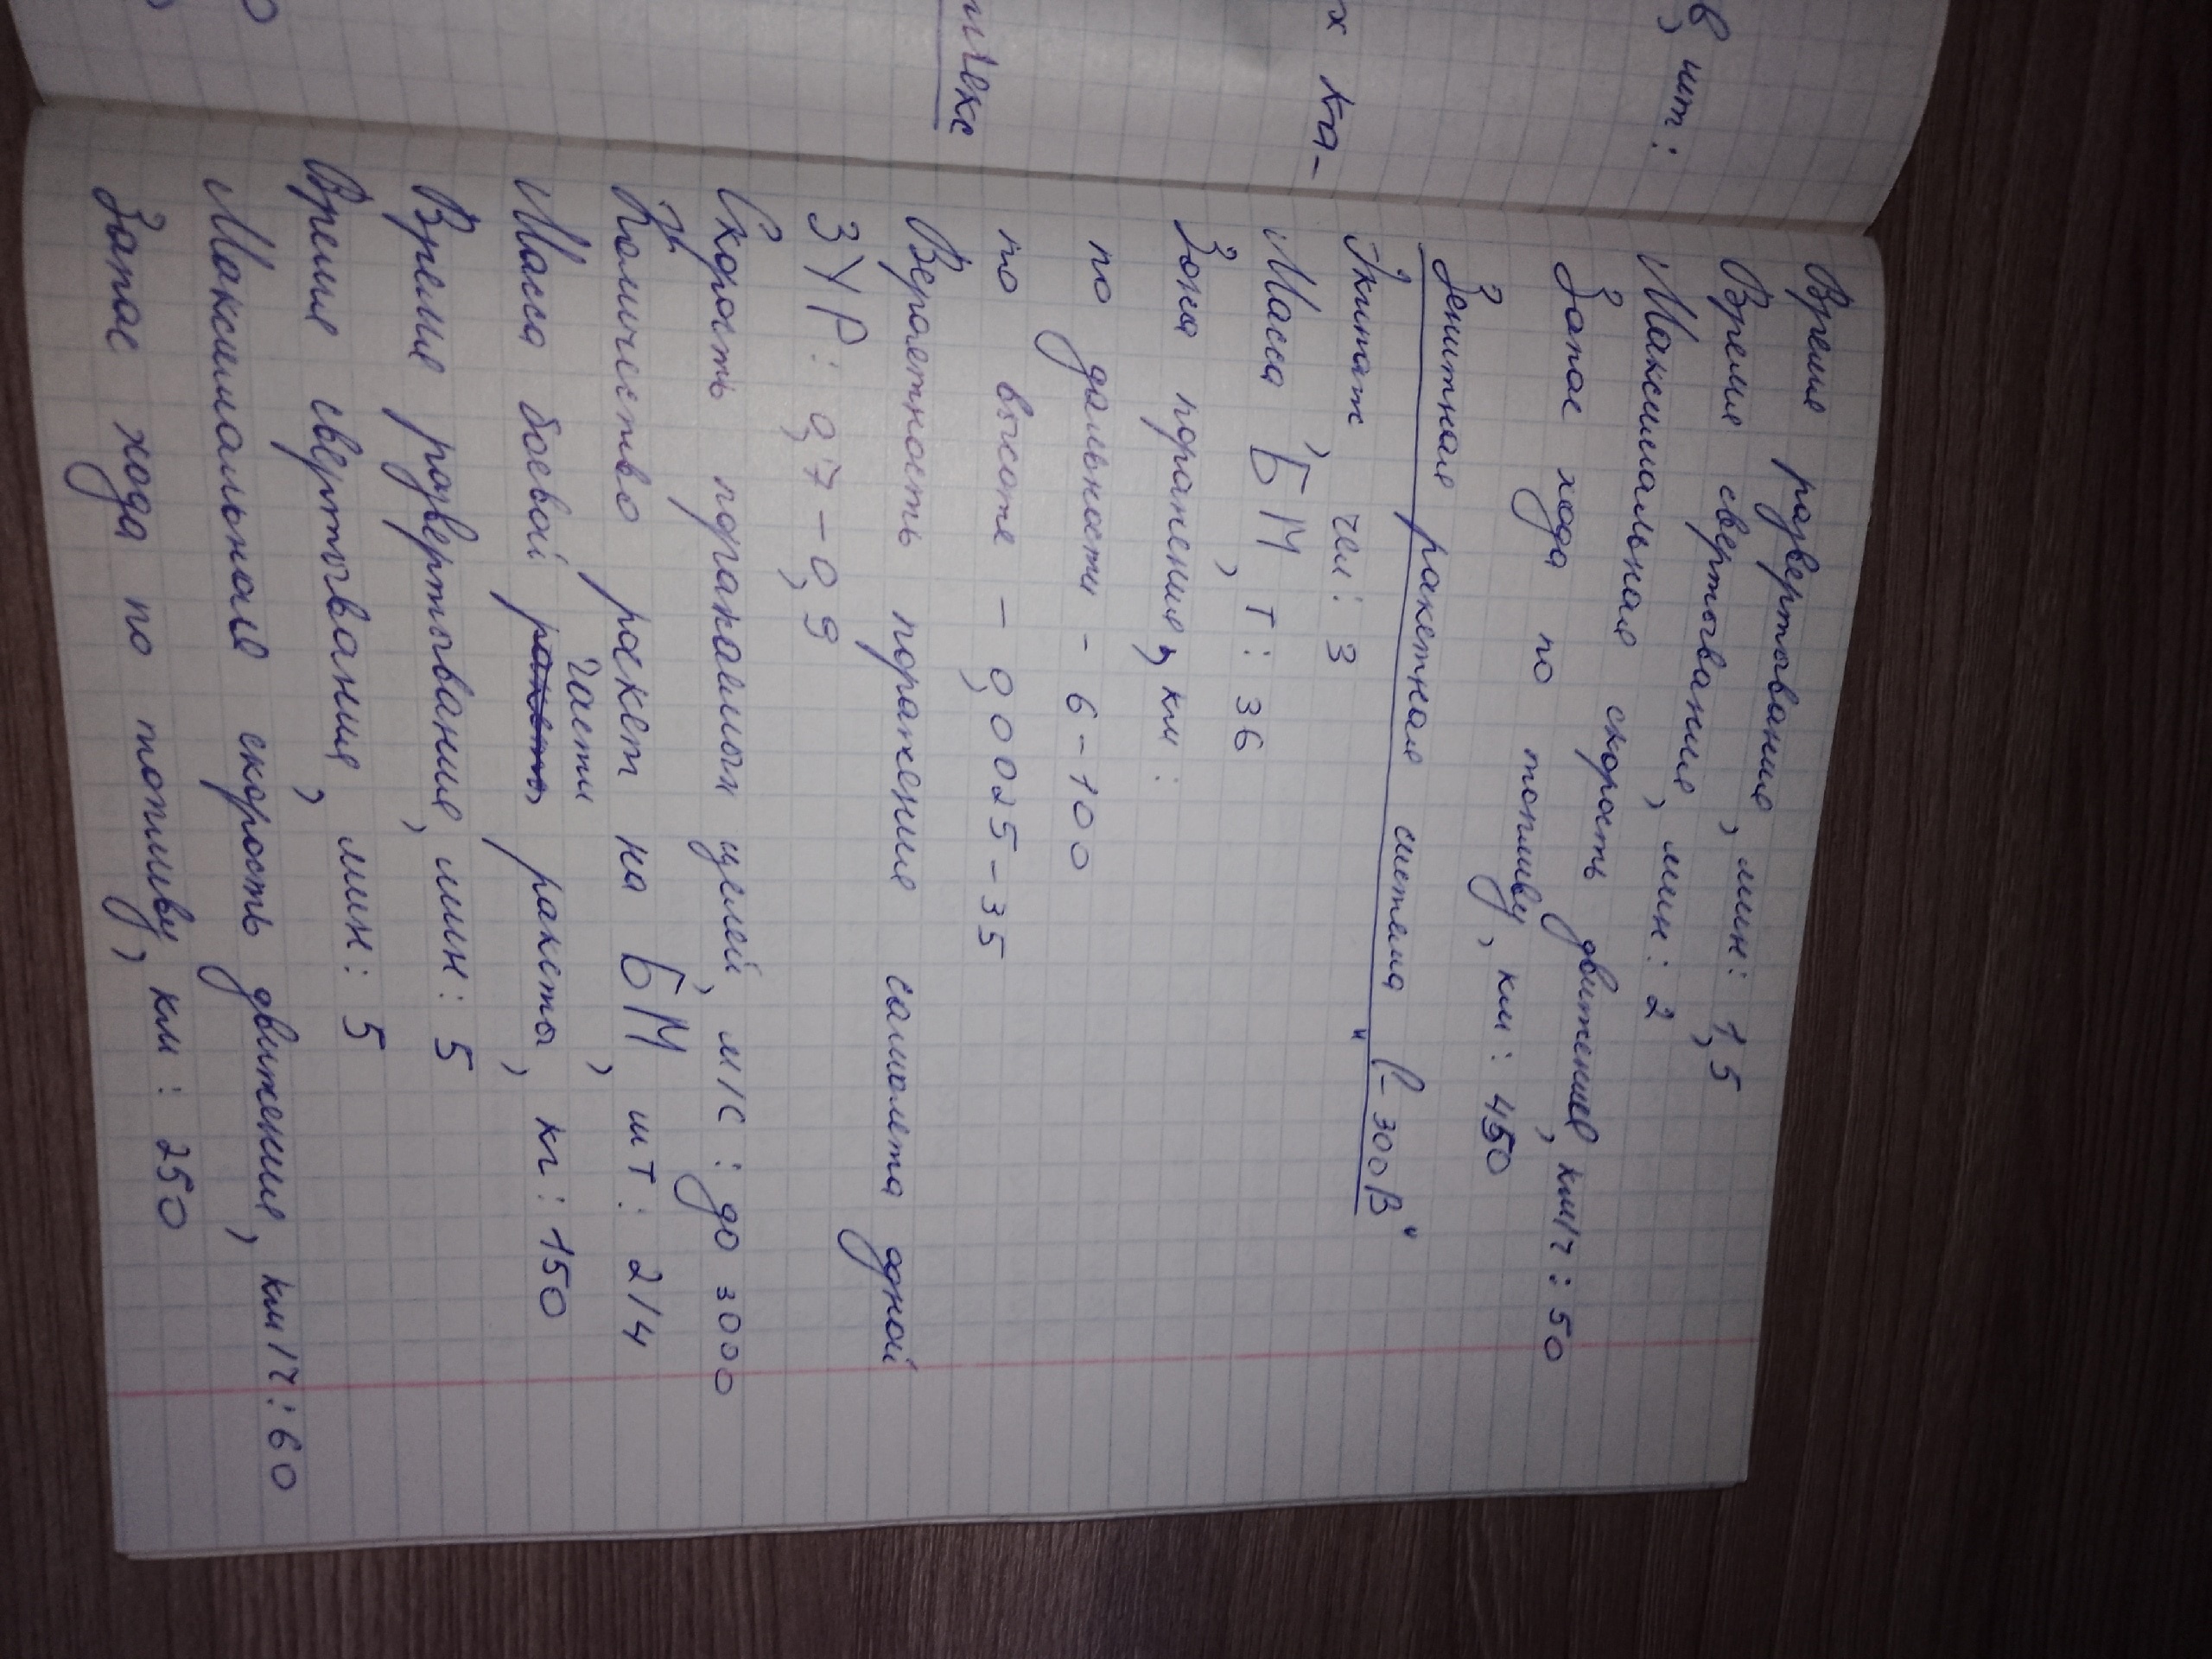 в, шт:
х ка-
Время развертывания, мин: 1,5
Время свертывания, мин: 2
Максимальная скорость движения, км/ч: 50
Запас хода по топливу, км: 450
Зенитная ракетная система "С-300В"
Экипаж, чел: 3
Масса БМ, т: 36
Зона поражения, км:
по дальности - 6-100
по высоте - 0,0025-35
Вероятность поражения самолета одной
ЗУР: 0,7-0,9
Скорость поражаемых целей, м/с: до 3000
Количество ракет на БМ, шт: 2/4
части
Масса боевой ракеты, кг: 150
Время развертывания, мин: 5
Время свертывания, мин: 5
Максимальная скорость движения, км/ч: 60
Запас хода по топливу, км: 250